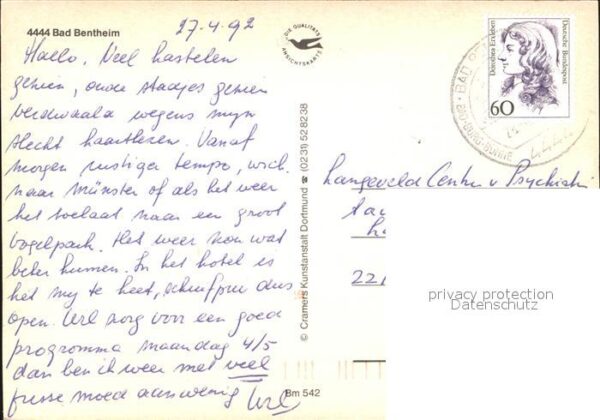 4444 Bad Bentheim
27-4-92
Hallo. Veel kastelen
gezien, oude stadjes gezien
verdwaald wegens mijn
slecht kaartlezen. Vanaf
morgen rustiger tempo,
naar Münster of als het weer
het toelaat naar een groot
vogelpark. Het weer kon wat
beter kunnen. In het hotel is
het mij te heet, schuifpui dus
open. Wil zorg voor een goed
programma maandag 4/5
dan ben ik weer met veel
frisse moed aanwezig
DIE QUALITÄTS
ANSICHTSKARTE
© Cramers Kunstanstalt Dortmund ☎ (0231) 528238
Bm 542
Dorothea Erxleben
Deutsche Bundespost
60
BAD
BURG-BÜHNE
444
Langeveld Centr. v Psychiatri
221
privacy protection
Datenschutz